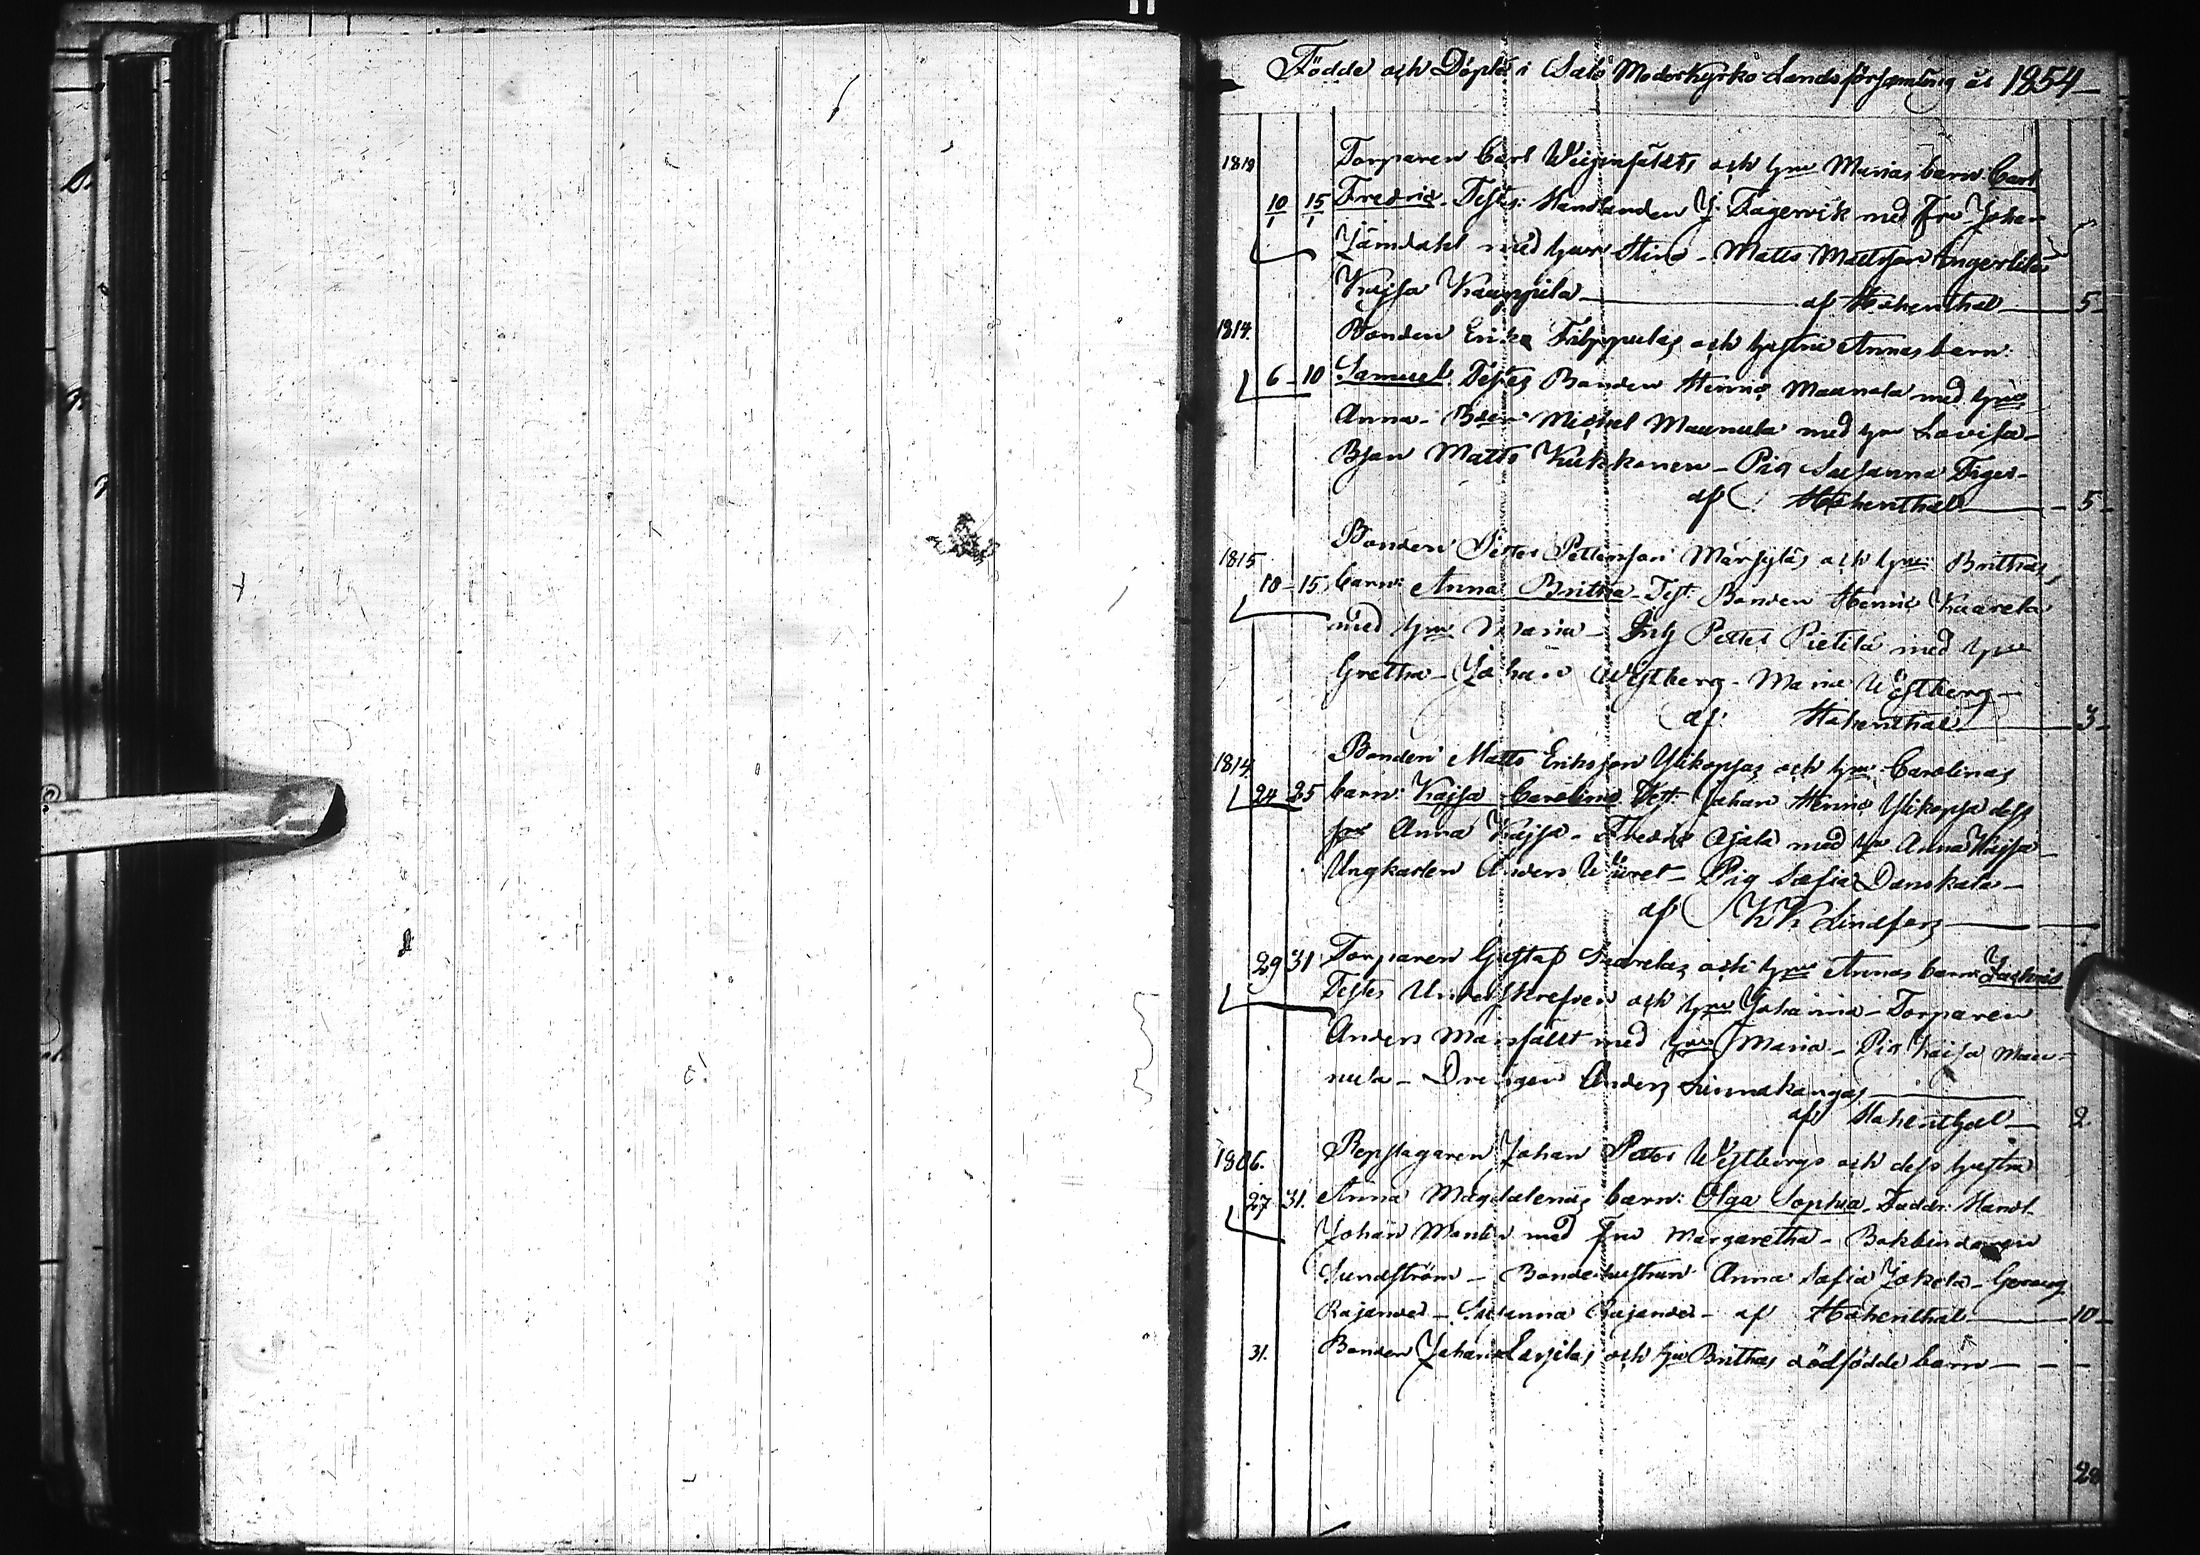 Födde och Döpte i Salo Moderkyrko Landsförsamling år 1854
1812 Torparen Carl och hu Marias barn: Carl
10/1 15/1 Fredric. Test: Handlanden J. Fagervik med Fru Joha-
med hust Stina - Matts Mattsson
Kajsa Kauppila - af Hohenthal - 5 -
1814. Bonden Eric Filppulas och hustru Annas barn:
6 - 10 Samuel. Testes Bonden Henric Maunula med hu
Anna - Bden Michel Maunula med hu Lovisa -
Bson Matts Kukkonen - Pig Susanna
af Hohenthal - 5 -
1815 Bonden Petter Pettersson och hu Brithas
10 - 15 barn: Anna Britha - Test: Bonden Henric Kaarela
med hu Maria - Petter Pietilä med hu
Gretha - Johan Westberg - Maria Westberg -
af Hohenthal - 3 -
1814. Bonden Matts Eriksson Ylikopsas och hu Carolinas
24 25 barn: Kajsa Carolina. Test: Johan Henric Ylikopsa dess
hu Anna Kajsa - Fredric Ojala med hu Anna Kajsa -
Ungkarlen Anders - Pig Sofia Danskala -
af K K Lindfors -
29 31 Torparen Gustaf och hu Annas barn Zachris
Testes Underskrefven och hu Johanna - Torparen
Anders med hu Maria - Pig Kaisa Mau-
nula - Drengen Anders Linnakangas
af Hohenthal - 2
1806. Repslagaren Johan Petter Westbergs och dess hustru
27 31. Anna Magdalenas barn: Olga Sophia. Faddr: Handl.
Johan med Fru Margaretha - Bokbindaren
Sundström - Bondehustrun Anna Sofia Jokela - Georg
Rajander - Susanna Rajander - af Hohenthal - 10 -
31. Bonden Johan och hu Brithas dödfödde barn - - -